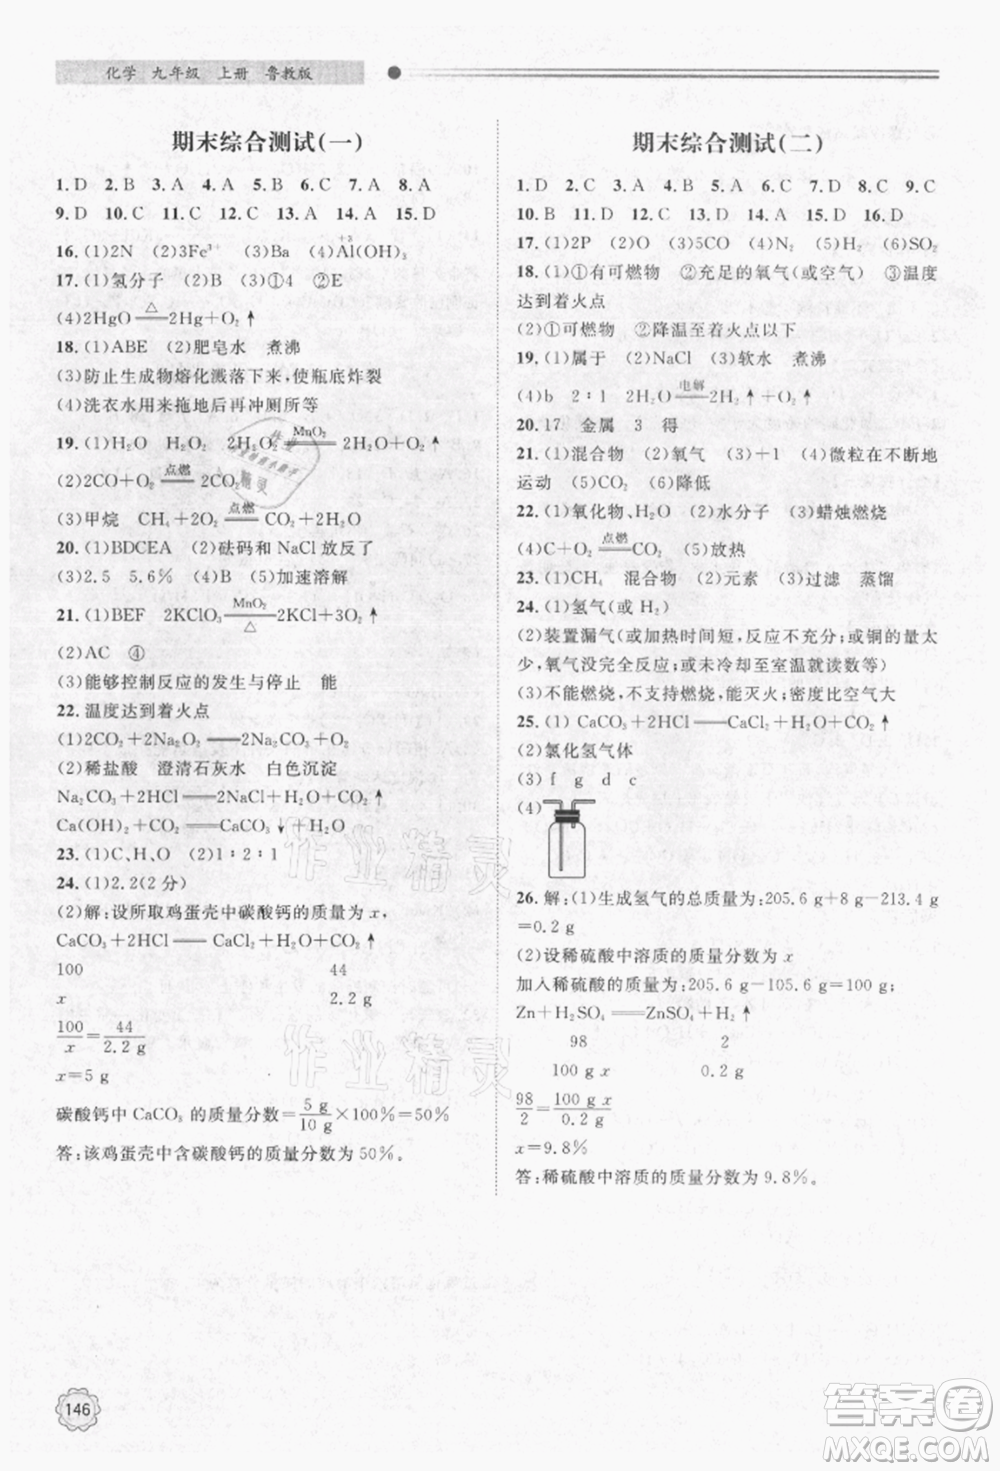 化学 九年级 上册 鲁教版
期末综合测试(一)
1.D 2.B 3.A 4.A 5.B 6.C 7.A 8.A
9.D 10.C 11.C 12.C 13.A 14.A 15.D
16.(1)2N (2)3Fe³⁺ (3)Ba (4)Al(OH)₃
+3
17.(1)氢分子 (2)31 (3)①A ②E
(4)2HgO══△══2Hg+O₂↑
18.(1)ABE (2)肥皂水 煮沸
(3)防止生成物熔化溅落下来,使瓶底炸裂
(4)洗衣水用来拖地后再冲厕所等
19.(1)H₂O H₂O₂ 2H₂O₂══MnO₂══2H₂O+O₂↑
(2)2CO+O₂══点燃══2CO₂
(3)甲烷 CH₄+2O₂══点燃══CO₂+2H₂O
20.(1)BDCEA (2)砝码和NaCl放反了
(3)2.5 5.6% (4)50 (5)加速溶解
21.(1)BEF 2KClO₃══MnO₂/△══2KCl+3O₂↑
(2)AC ④
(3)能够控制反应的发生与停止 能
22.温度达到着火点
(1)2CO₂+2Na₂O₂══2Na₂CO₃+O₂
(2)稀盐酸 澄清石灰水 白色沉淀
Na₂CO₃+2HCl══2NaCl+H₂O+CO₂↑
Ca(OH)₂+CO₂══CaCO₃↓+H₂O
23.(1)C、H、O (2)1∶2∶1
24.(1)2.2(2分)
(2)解:设所取鸡蛋壳中碳酸钙的质量为x,
CaCO₃+2HCl══CaCl₂+H₂O+CO₂↑
100 44
x 2.2 g
100/x=44/2.2 g
x=5 g
碳酸钙中CaCO₃的质量分数=5 g/10 g×100%=50%
答:该鸡蛋壳中含碳酸钙的质量分数为50%。
期末综合测试(二)
1.D 2.C 3.A 4.B 5.C 6.B 7.D 8.C 9.C
10.B 11.B 12.A 13.C 14.D 15.D 16.D
17.(1)2P (2)O (3)5CO (4)N₂ (5)H₂ (6)SO₂
18.(1)①有可燃物 ②充足的氧气(或空气) ③温度
达到着火点
(2)①可燃物 ②降温至着火点以下
19.(1)属于 (2)NaCl (3)软水 煮沸
(4)b 2∶1 2H₂O══电解══2H₂↑+O₂↑
20.17 金属 3 得
21.(1)混合物 (2)氧气 (3)A (4)微粒在不断地
运动 (5)CO₂ (6)降低
22.(1)氧化物、H₂O (2)水分子 (3)蜡烛燃烧
(4)C+O₂══点燃══CO₂ (5)放热
23.(1)CH₄ 混合物 (2)元素 (3)过滤 蒸馏
24.(1)氢气(或H₂)
(2)装置漏气(或加热时间短,反应不充分;或铜的量太
少,氧气没完全反应;或未冷却至室温就读数等)
(3)不能燃烧,不支持燃烧,能灭火;密度比空气大
25.(1) CaCO₃+2HCl══CaCl₂+H₂O+CO₂↑
(2)氯化氢气体
(3) f g d c
(4)
26.解:(1)生成氢气的总质量为:205.6 g+8 g-213.4 g
=0.2 g
(2)设稀硫酸中溶质的质量分数为x
加入稀硫酸的质量为:205.6 g-105.6 g=100 g;
Zn+H₂SO₄══ZnSO₄+H₂↑
98 2
100 g x 0.2 g
98/2=100 g x/0.2 g
x=9.8%
答:稀硫酸中溶质的质量分数为9.8%。
作业精灵
作业精灵
146
答案圈
MXQE.COM